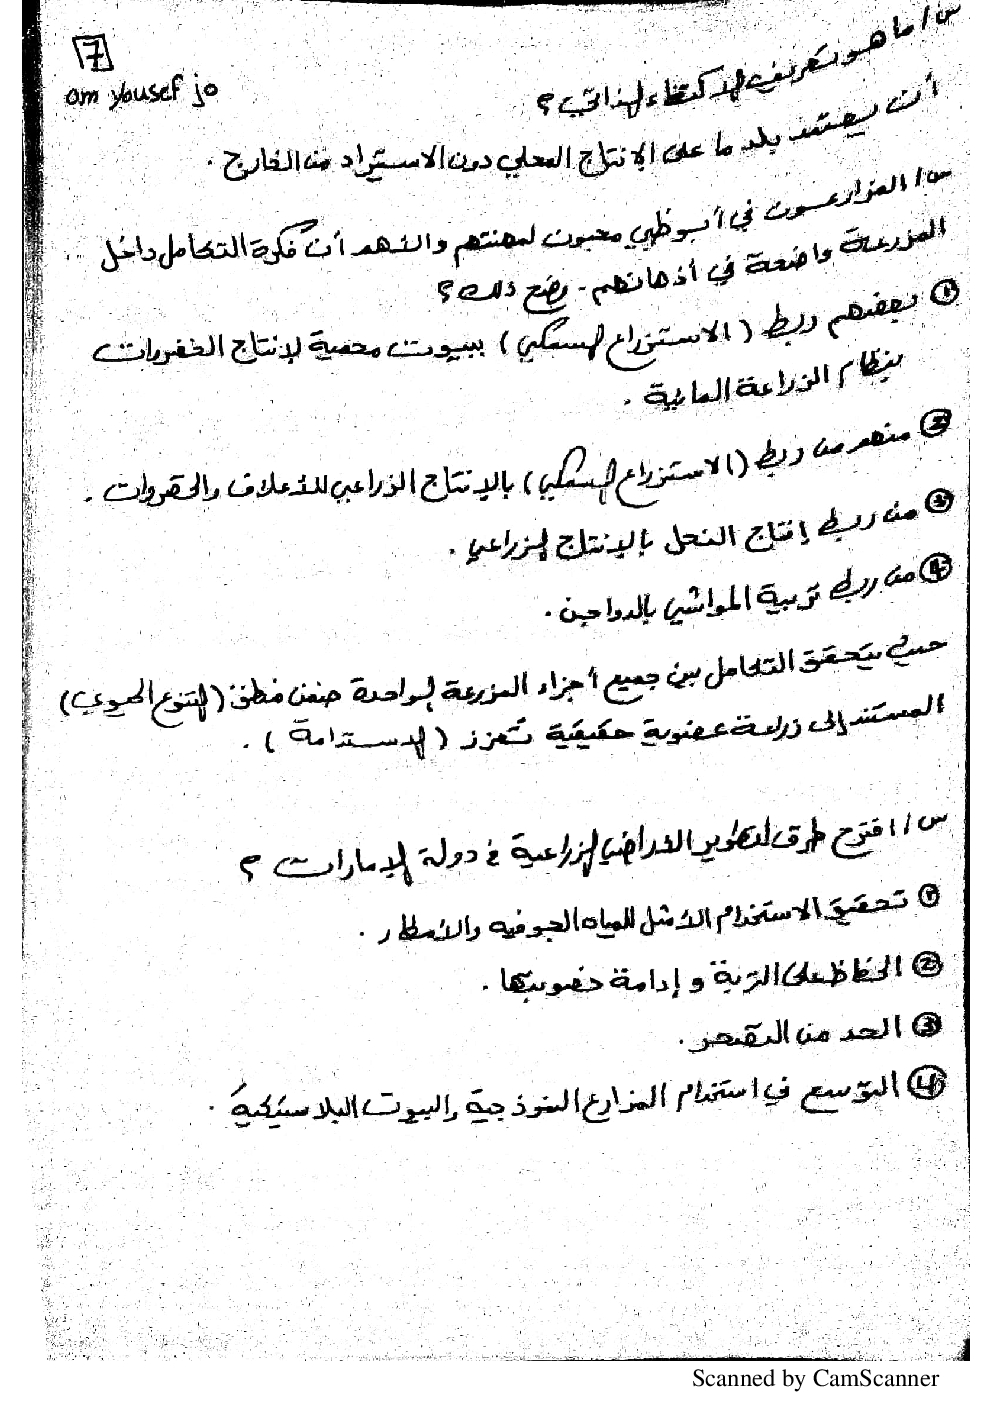 7
om yousef jo
س/ ما هو تعريف الاكتفاء الذاتي ؟
أن يعتمد بلد ما على الإنتاج المحلي دون الاستيراد من الخارج .
س/ المزارعون في أبوظبي محبون لمهنتهم والأهم أن فكرة التكامل داخل
المزرعة واضحة في أذهانهم - وضح ذلك ؟
① بعضهم ربط ( الاستزراع السمكي ) ببيوت محمية لإنتاج الخضروات
بنظام الزراعة المائية .
② منهم من ربط ( الاستزراع السمكي ) بالإنتاج الزراعي للأعلاف والخضروات .
③ من ربط إنتاج النحل بالإنتاج الزراعي .
④ من ربط تربية المواشي بالدواجن .
حيث يتحقق التكامل بين جميع أجزاء المزرعة الواحدة ضمن منطق ( التنوع الحيوي )
المستند إلى زراعة عضوية حقيقية تعزز ( الاستدامة ) .
س/ اقترح طرق لتطوير الأراضي الزراعية في دولة الإمارات ؟
① تحقيق الاستخدام الأمثل للمياه الجوفيه والأمطار .
② الحفاظ على التربة و إدامة خصوبتها .
③ الحد من التصحر .
④ التوسع في استخدام المزارع النموذجية والبيوت البلاستيكية .
Scanned by CamScanner